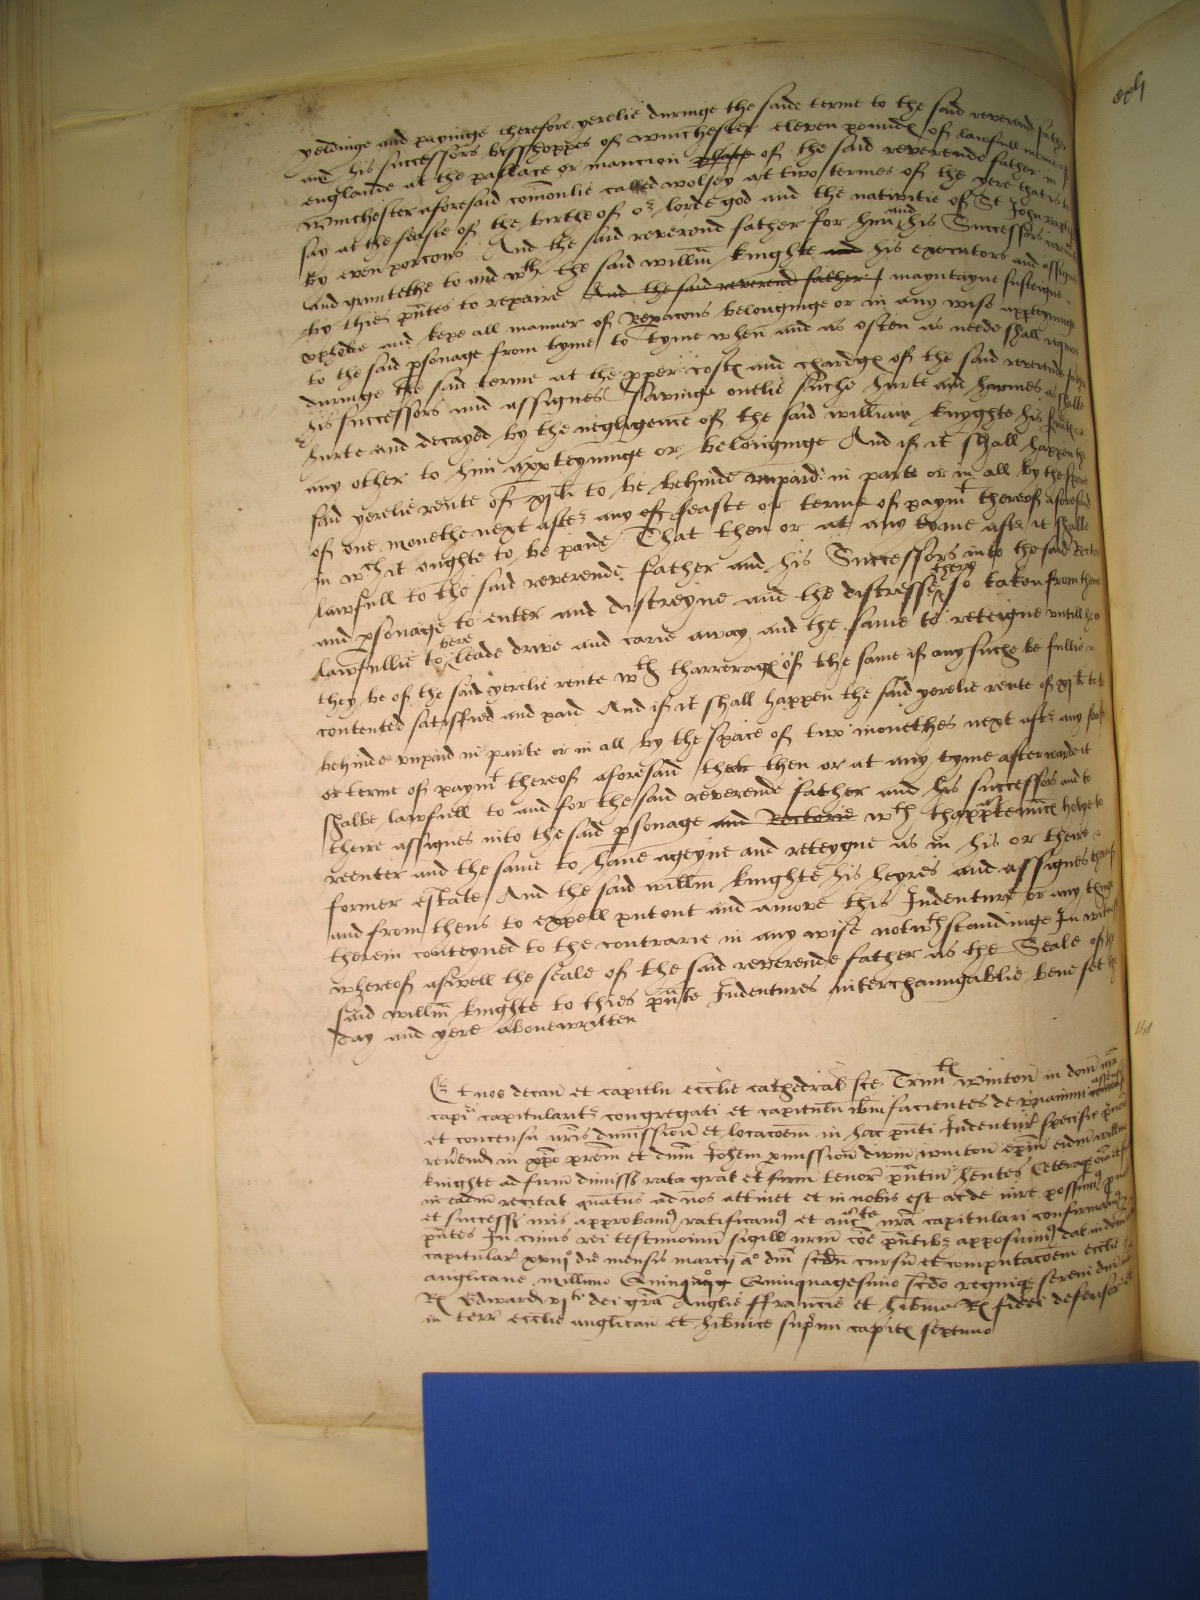 yeldinge and payinge therefore yerelie duringe the saide terme to the said reverend father
and his successors bisshoppes of winchester eleven poundes of lawfull money of
englande at the pallace or mancion place of the said reverende father in
winchester aforesaid comonlie called wolsey at two termes of the yere that is to
say at the feaste of the birthe of or lorde god and the nativitie of St John bapt
by even porcons And the said reverend father for him and his Successors
and grauntethe to and wth the said willm knighte and his executors and assignes
by thies pntes to repaire And the said reverend father mayntayne susteigne
upholde and kepe all manner of Repacons belonginge or in any wise appteyninge
to the said psonage from tyme to tyme when and as often as nede shall requier
duringe the said terme at the pper costes and chardges of the said reverende father
his successors and assignes Savinge onelie suche hurte and harmes as shalbe
hurte and decayed by the negligence of the said william knyghte his
any other to him appteyninge or belonginge And if it shall happen the
said yerelie rente of xjli to be behinde unpaid in parte or in all by the space
of one monethe next after any of feaste or terme of paymt thereof aforesaid
in wch it oughte to be paide That then or at any tyme after it shalbe
lawfull to the said reverende father and his Successors into the said Rectorie
and psonage to enter and distreyne and the distresse there so taken from thens
lawfullie to bere leade drive and carie away and the same to reteigne untill
they be of the said yerelie rente wth tharrerages of the same if any suche be fullie
contented satisfied and paid And if it shall happen the said yerelie rente of xjli to be
behinde unpaid in parte or in all by the space of two monethes next after any feaste
or terme of paymt thereof aforesaid that then or at any tyme afterwarde it
shalbe lawfull to and for the said reverende father and his successors and to
theire assignes into the said psonage and Rectorie wth thappteninces holye to
reenter and the same to have ageyne and reteygne as in his or there
former estate And the said willm knighte his heyres and assignes
and from thens to expell put out and amove this Indenture or any thinge
therein conteyned to the contrarie in any wise notwthstandinge In witness
whereof aswell the seale of the said reverende father as the Seale of the
said willm knighte to thies pnte Indentures interchaungablie bene set the
day and yere abovewritten
Et nos decan et capitlu ecclie cathedral sce Trinitis winton in domo nra
capi capitularit congregati et capitulu ibm facientes de unanimi assensu
et concensu nris dimission et locacoem in hac pnti Indentur specific
revend in xpo prem et dnm Johem pmission diwin winton epm eidm willmo
knighte ad firm dimiss rata grat et firm tenor pntiu hentes Ceteraqe oia
in eadm recitat quatus ad nos attinet et in nobis est ac de iure possumus p nobis
et success nris approbamus ratificamus et aucte nra capitulari confirmamus p
pntes In cuius rei testimoniu sigillu nrm coe pntibz apposuimus dat in domo
capitular xviijo die mensis marcij ao dni scdm cursu et computacoem ecclie
anglicane millimo Quingo Quinquagesimo scdo regnique sereni dni
Rs Edwardi vjti dei gra Anglie ffrancie et hibnie Rs fidei defensor
in terr ecclie anglican et hibnice supmi capitis sextimo